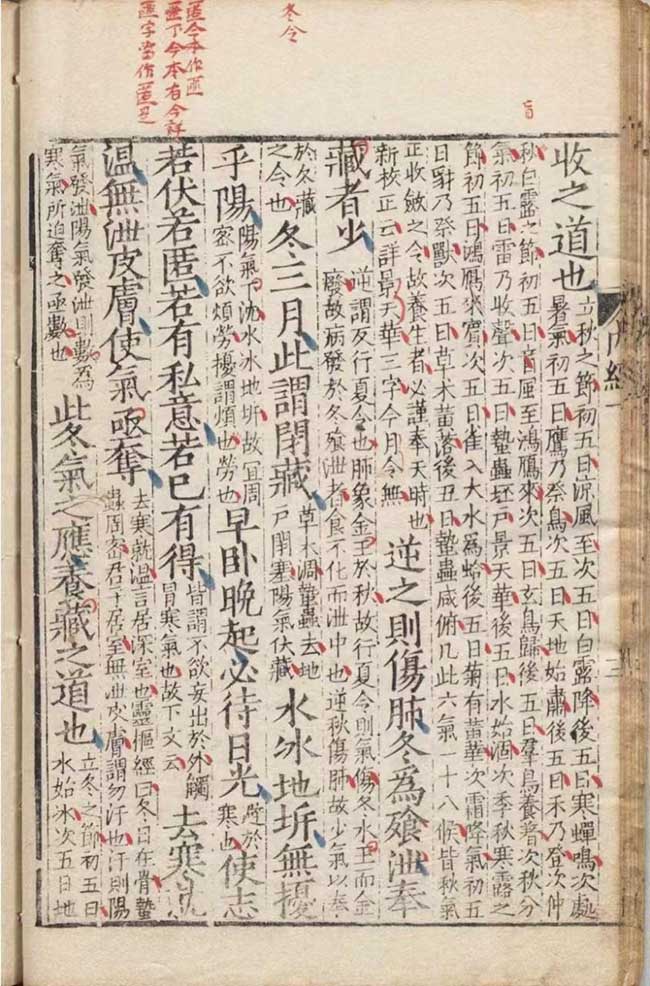 内經一
三
盲
冬令
收之道也立秋之節初五日涼風至次五日白露降後五日寒蟬鳴次處
暑氣初五日鷹乃祭鳥次五日天地始肅後五日禾乃登次仲
秋白露之節初五日盲風至鴻鴈來次五日玄鳥歸後五日羣鳥養羞次秋分
氣初五日雷乃收聲次五日蟄蟲坯戶景天華後五日水始涸次季秋寒露之
節初五日鴻鴈來賓次五日雀入大水為蛤後五日菊有黃華次霜降氣初五
日豺乃祭獸次五日草木黃落後五日蟄蟲咸俯凡此六氣一十八候皆秋氣
正收斂之令故養生者必謹奉天時也
新校正云詳景天華三字今月令無
逆之則傷肺冬為飱泄奉
藏者少逆謂反行夏令也肺象金王於秋故行夏令則氣傷冬水王而金
廢故病發於冬飱泄者食不化而泄出也逆秋傷肺故少氣以奉
於冬藏
之令也
冬三月此謂閉藏草木凋蟄蟲去地
戶閉塞陽氣伏藏
水冰地坼無擾
乎陽陽氣下沈水冰地坼故宜周
密不欲煩勞擾謂煩也勞也
早卧晚起必待日光避於
寒也
使志
若伏若匿若有私意若已有得皆謂不欲妄出於外觸
冒寒氣也故下文云
去寒就
温無泄皮膚使氣亟奪去寒就温言居深室也靈樞經曰冬日在骨蟄
蟲周密君子居室無泄皮膚謂勿汗也汗則陽
氣發泄陽氣發泄則數為
寒氣所迫奪之亟數也
此冬氣之應養藏之道也立冬之節初五日
水始冰次五日地